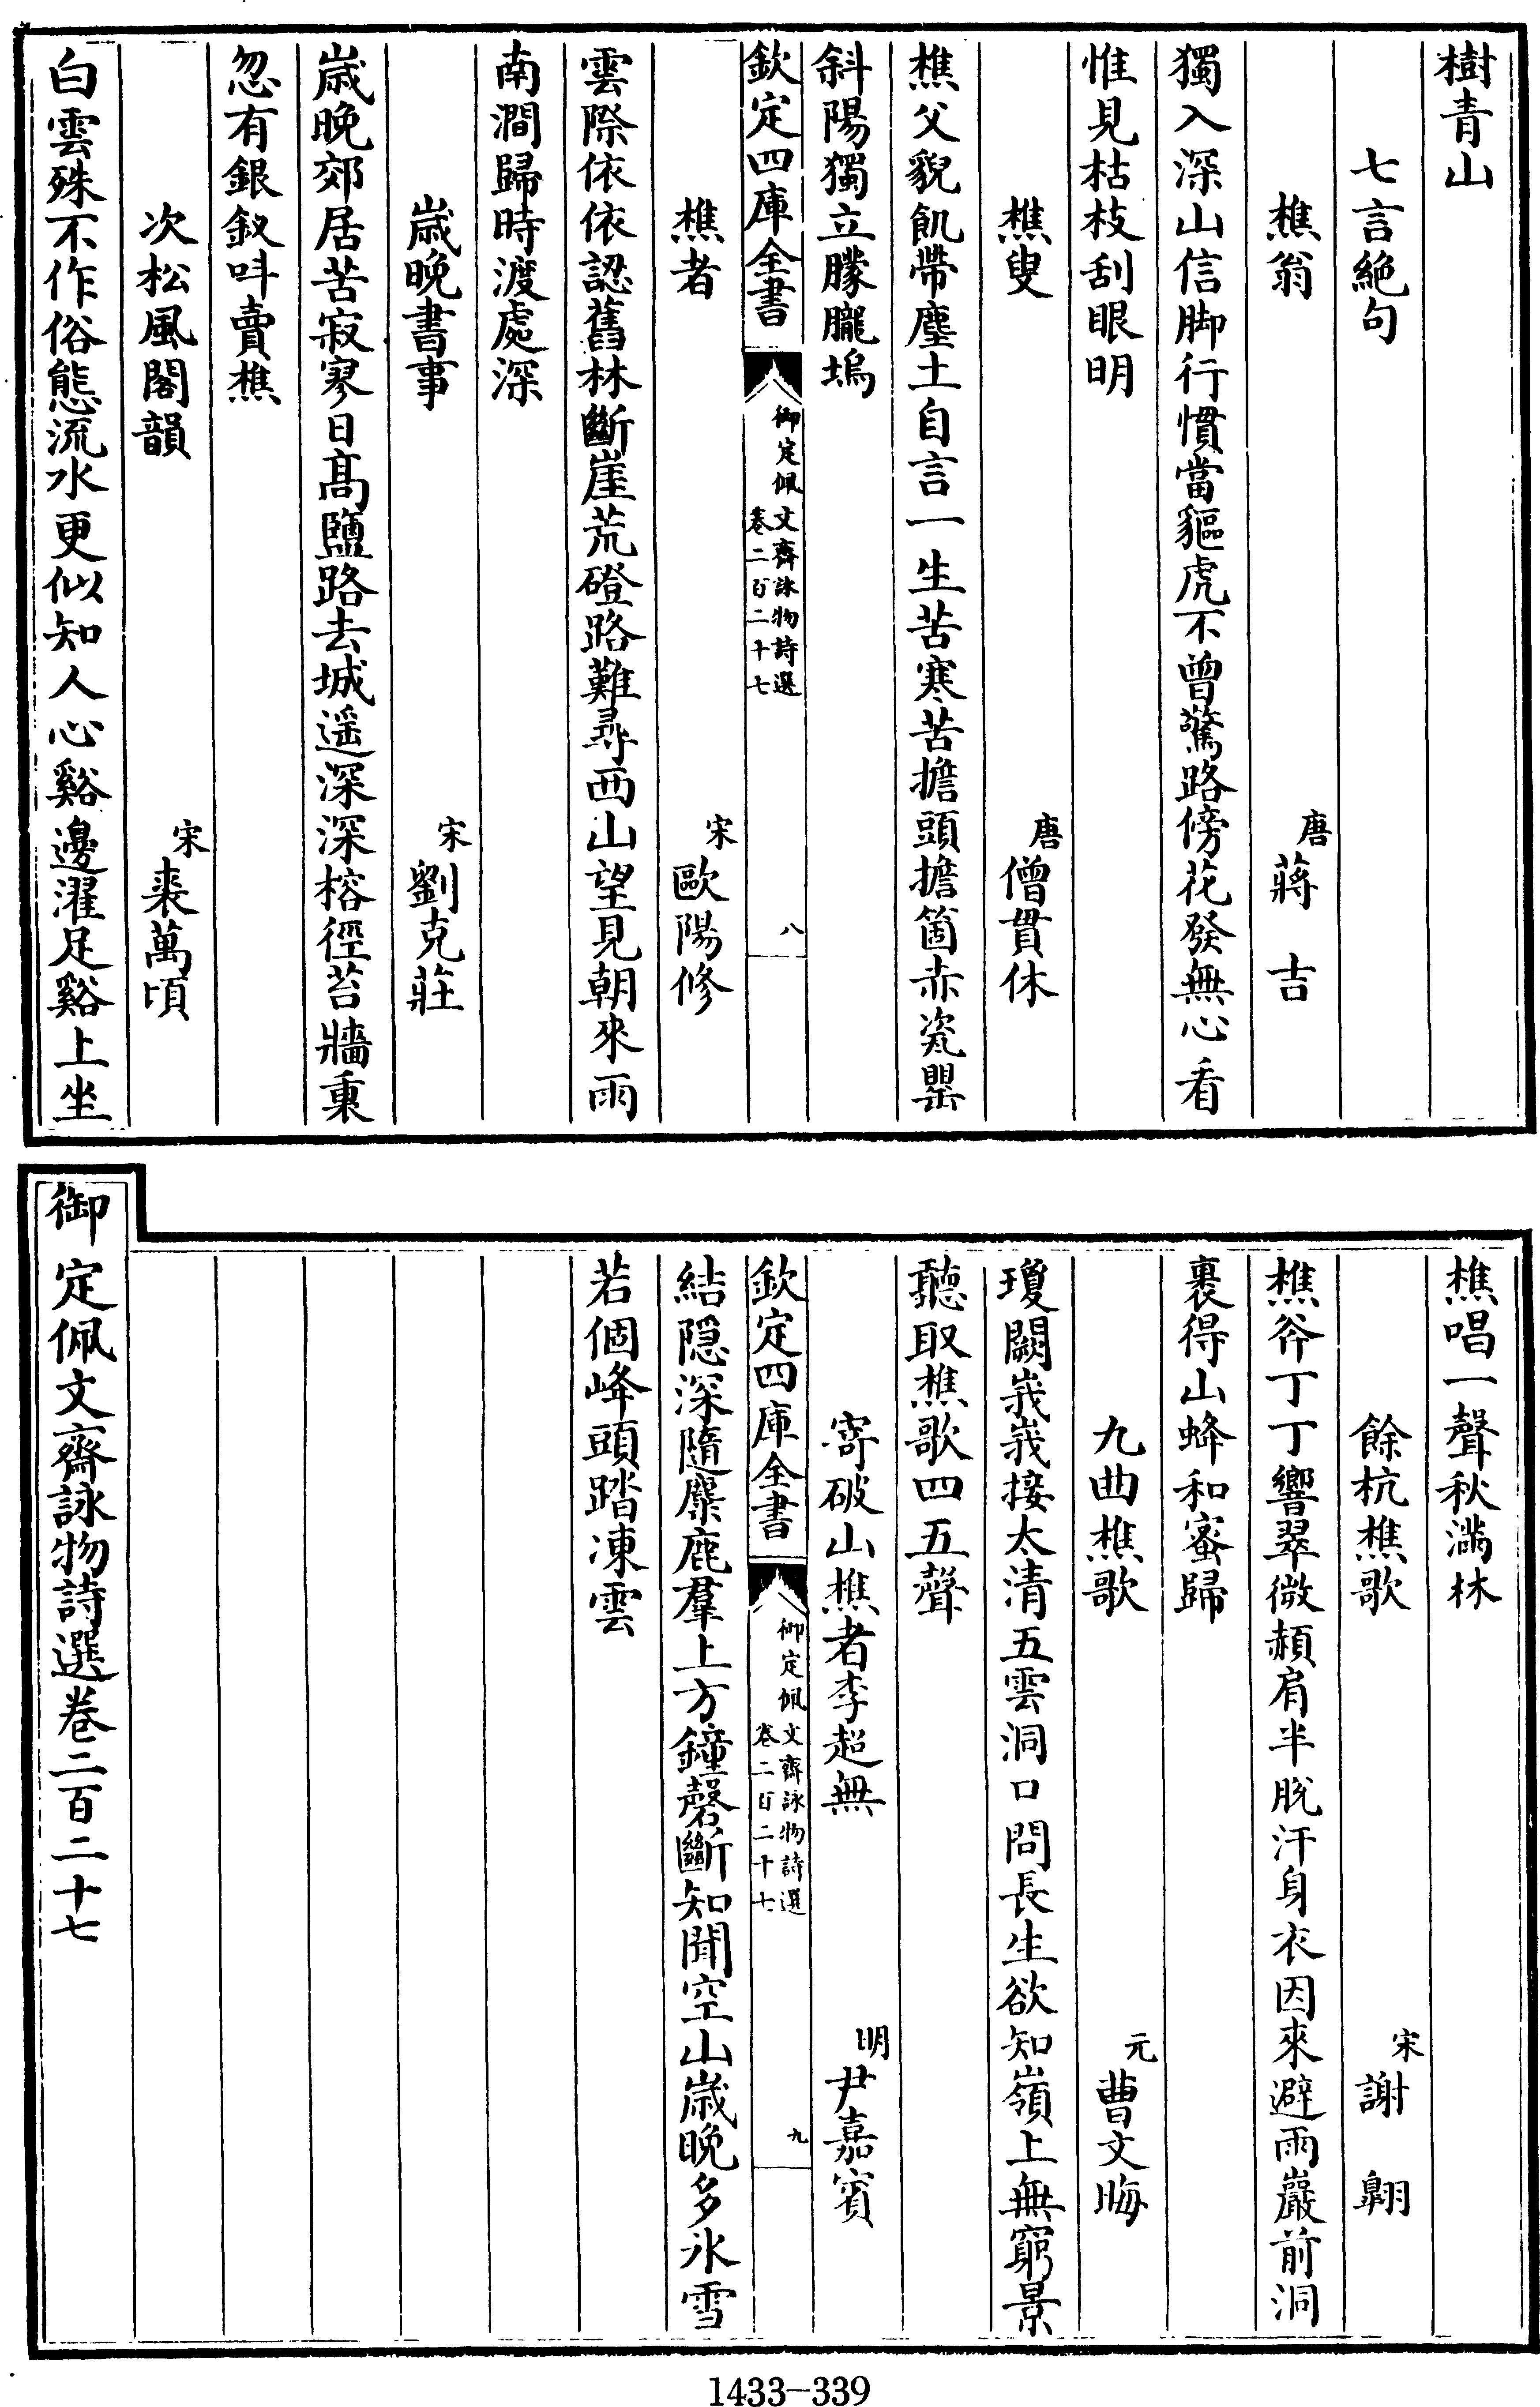 樹青山
七言絶句
樵翁 唐 蔣吉
獨入深山信脚行慣當貙虎不曾驚路傍花發無心看
惟見枯枝刮眼明
樵叟 唐 僧貫休
樵父貌飢帶塵土自言一生苦寒苦擔頭擔箇赤瓷罌
斜陽獨立朦朧塢
欽定四庫全書 御定佩文齋詠物詩選 卷二百二十七 八
樵者 宋 歐陽修
雲際依依認舊林斷崖荒磴路難尋西山望見朝來雨
南澗歸時渡處深
歳晩書事 宋 劉克莊
歳晩郊居苦寂寥日髙鹽路去城遥深深榕徑苔牆裏
忽有銀釵呌賣樵
次松風閣韻 宋 裘萬頃
白雲殊不作俗態流水更似知人心谿邊濯足谿上坐
樵唱一聲秋滿林
餘杭樵歌 宋 謝翺
樵斧丁丁響翠微頳肩半脫汗身衣因來避雨巖前洞
裹得山蜂和蜜歸
九曲樵歌 元 曹文晦
瓊闕峩峩接太清五雲洞口問長生欲知嶺上無窮景
聽取樵歌四五聲
寄破山樵者李超無 明 尹嘉賓
欽定四庫全書 御定佩文齋詠物詩選 卷二百二十七 九
結隠深隨麋鹿羣上方鐘磬斷知聞空山歳晩多氷雪
若個峰頭踏凍雲
御定佩文齋詠物詩選卷二百二十七
1433-339